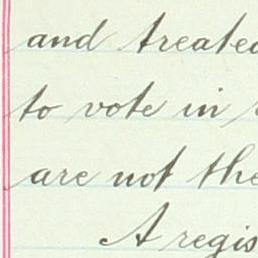 and treated
to vote in
are not the
A regis